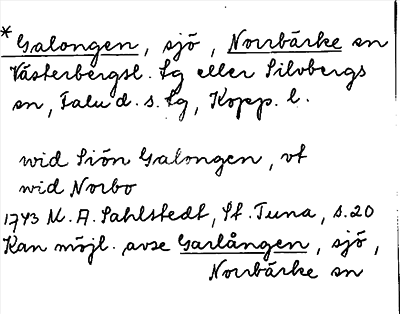 * Galongen, sjö, Norrbärke sn
Västerbergsl. Lg eller Silvbergs
sn, Falu d. s. Lg, Kopp. l.
wid Siön Galongen, vt
wid Norbo
1743 M. A. Sahlstedt, St. Tuna, s. 20
Kan möjl. avse Garlången, sjö,
Norrbärke sn